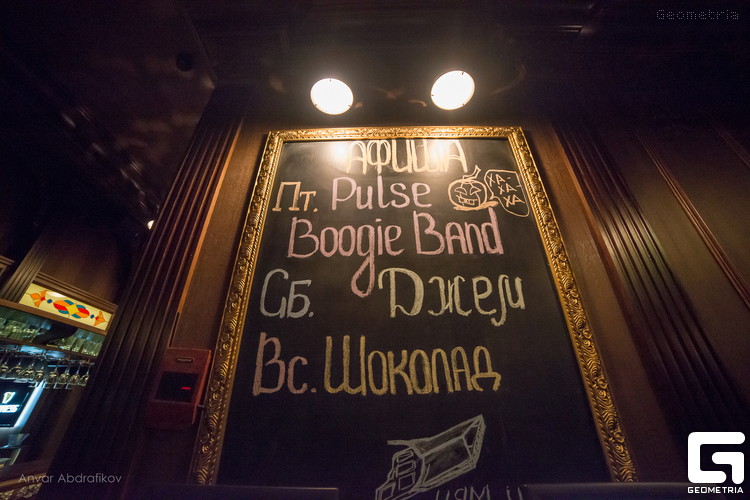 Geometria
АФИША
Пт. Pulse
ХА-
ХА-
ХА
Boogie Band
Сб. Джем
Вс. Шоколад
ням
Anvar Abdrafikov
G
GEOMETRIA